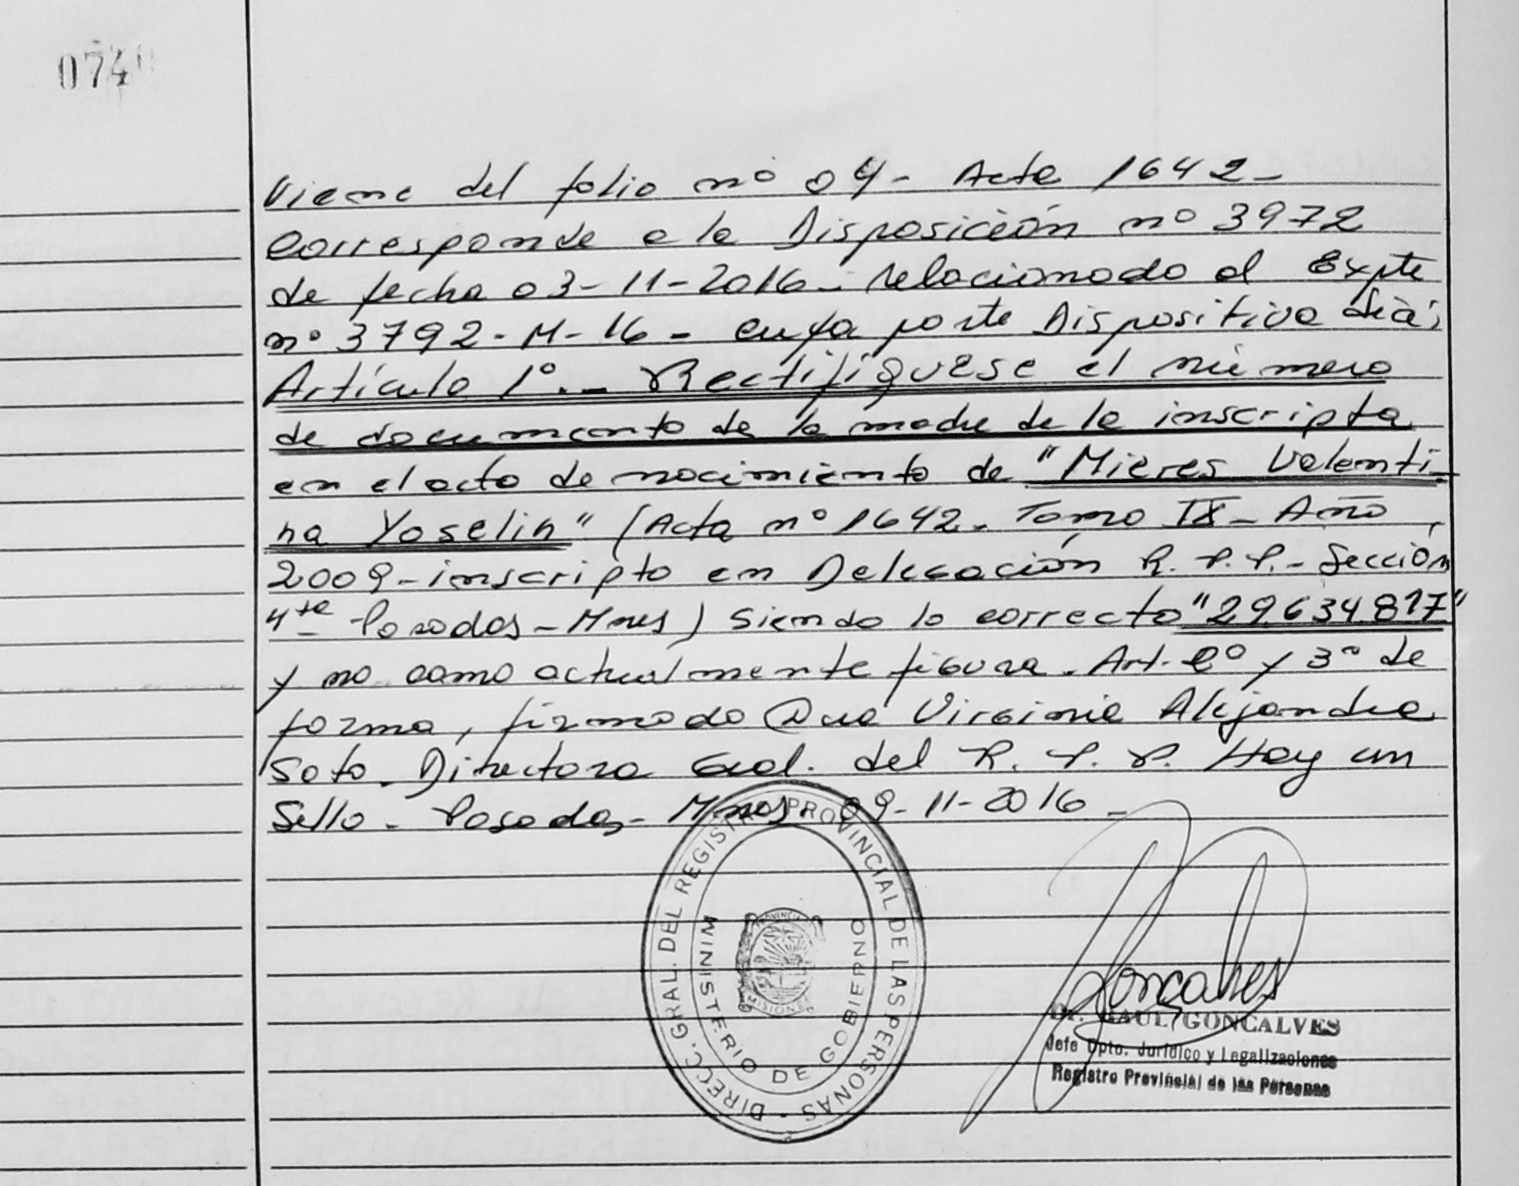 074
Viene del folio nº 04- Acta 1642-
Corresponde a la Disposición nº 3972
de fecha 03-11-2016- relacionado al Expte
nº 3792-M-16- cuya parte Dispositiva dia;
Artículo 1º.- Rectifíquese el número
de documento de la madre de la inscripta
en el acta de nacimiento de "Mieres Valenti-
na Yoselin" (Acta nº 1642- Tomo IX- Año
2009-inscripta en Delegación R. P. P.- Sección
4ta Posadas-Mnes) Siendo lo correcto "29.634.817"
y no como actualmente figura. Art. 2º y 3º de
forma, firmado Dra Virginia Alejandra
Soto. Directora Gral. del R. P. P. Hay un
Sello- Posadas- Mnes. 09-11-2016-
DIRECC. GRAL. DEL REGISTRO PROVINCIAL DE LAS PERSONAS -
MINISTERIO DE GOBIERNO
PROVINCIA
MISIONES
Goncalves
Dr. RAUL GONCALVES
Jefe Dpto. Jurídico y Legalizaciones
Registro Provincial de las Personas